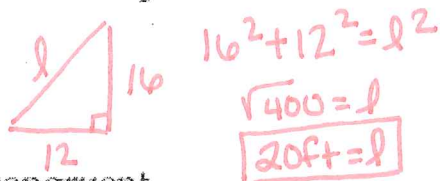 l
16
12
16² + 12² = l²
√400 = l
20ft = l